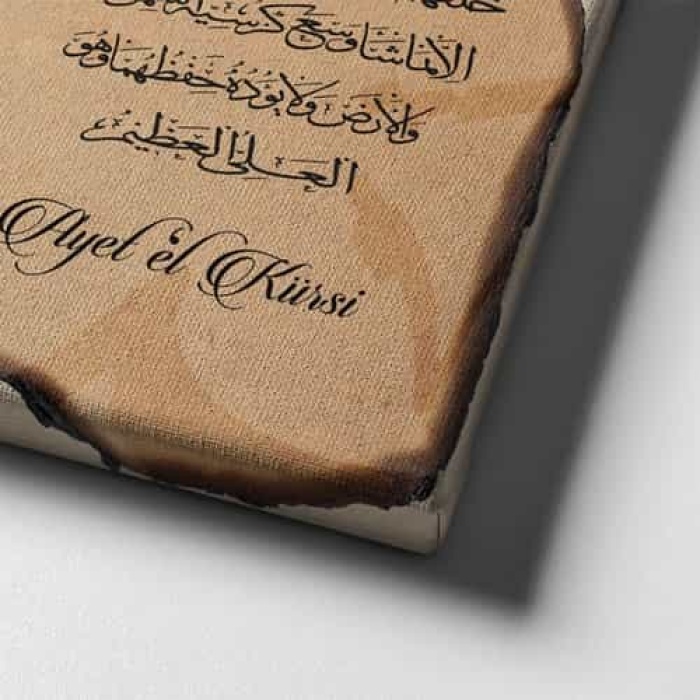 خلفهم
الا بما شاء وسع كرسيه السموات
والارض ولا يؤده حفظهما وهو
العلي العظيم
Ayet'el Kürsi